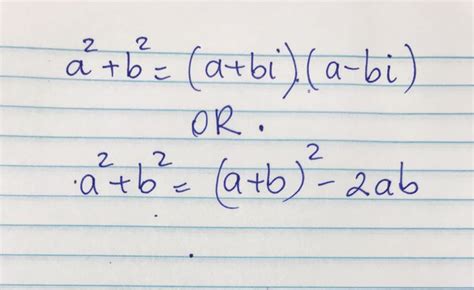 a²+b² = (a+bi).(a-bi)
OR.
.a²+b² = (a+b)² - 2ab